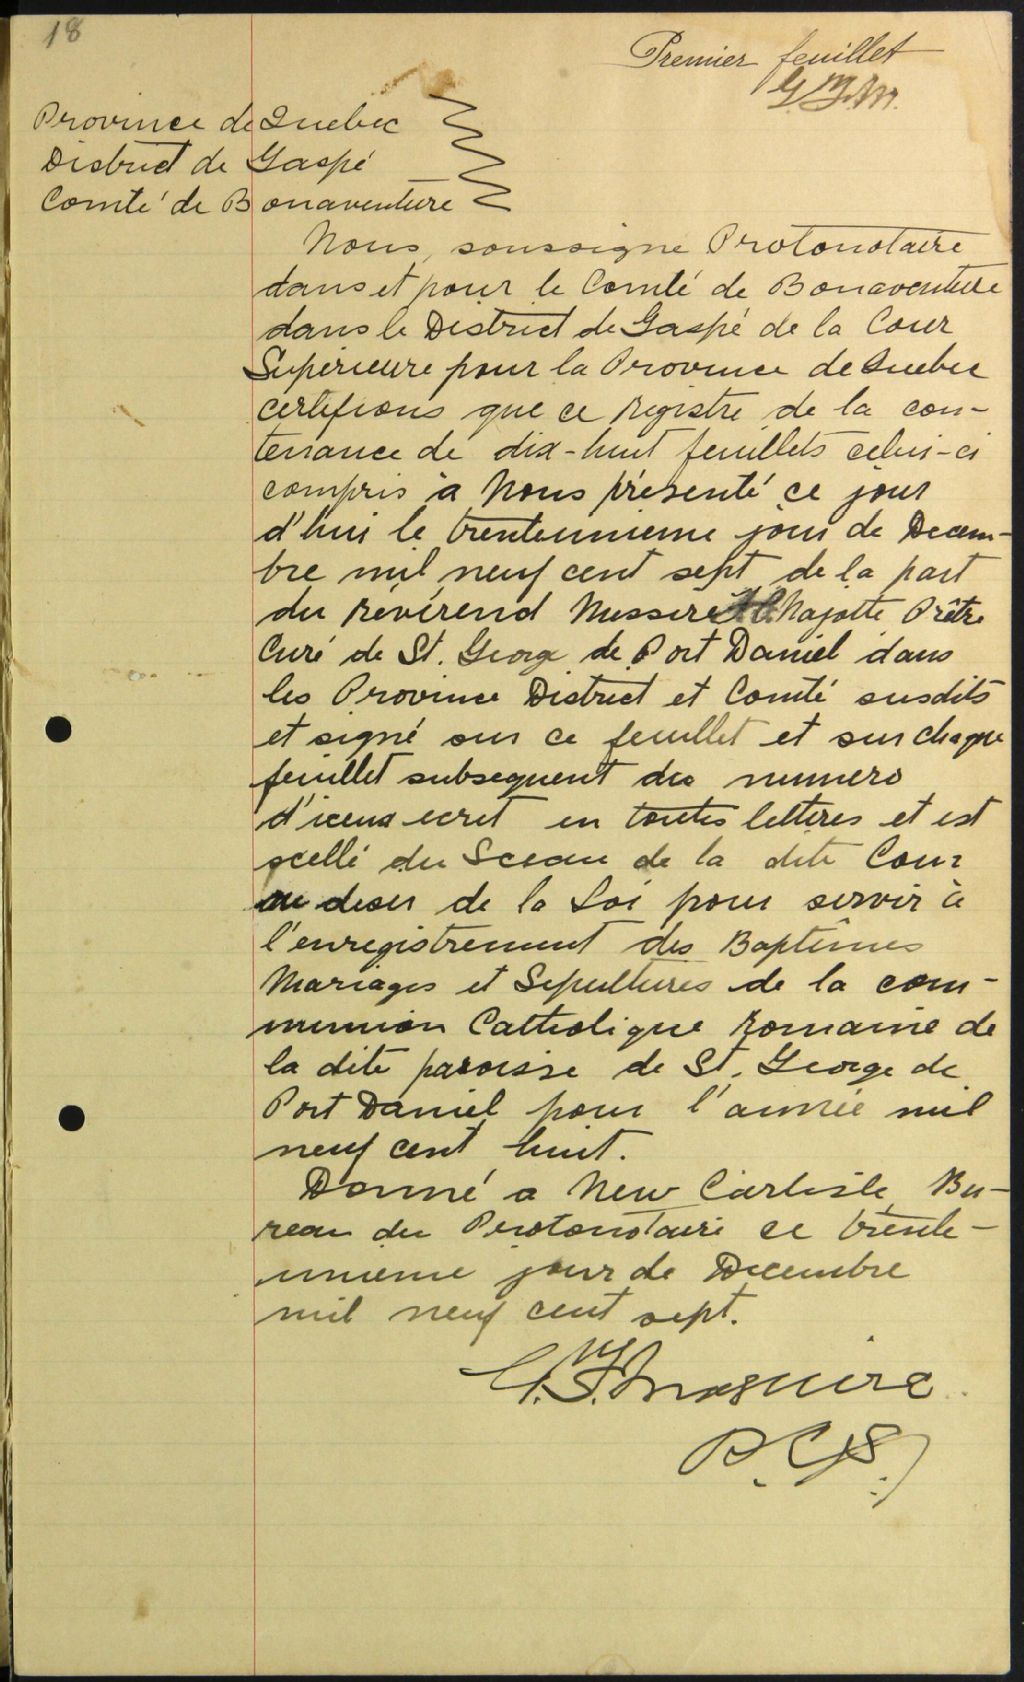 18
Premier feuillet
G.F.M.
Province de Quebec
District de Gaspé
Comté de Bonaventure
Nous, soussigne Protonotaire
dans et pour le Comté de Bonaventure
dans le District de Gaspé de la Cour
Superieure pour la Province de Quebec
certifions que ce registre de la con-
tenance de dix-huit feuillets celui-ci
compris a Nous présenté ce jour
d'hui le trenteunieme jour de Decem-
bre mil neuf cent sept de la part
du révérend Messire Majotte Prêtre
Curé de St. George de Port Daniel dans
les Province District et Comté susdits
et signé sur ce feuillet et sur chaque
feuillet subsequent du numero
d'iceux ecrit en toutes lettres et est
scellé du Sceau de la dite Cour
au desir de la Loi pour servir à
l'enregistrement des Baptêmes
Mariages et Sepultures de la com-
munion Catholique Romaine de
la dite paroisse de St. George de
Port Daniel pour l'année mil
neuf cent huit.
Donné a New Carlisle Bu-
reau du Protonotaire ce trente-
unieme jour de Decembre
mil neuf cent sept.
G. F. Maguire
P. C. S.